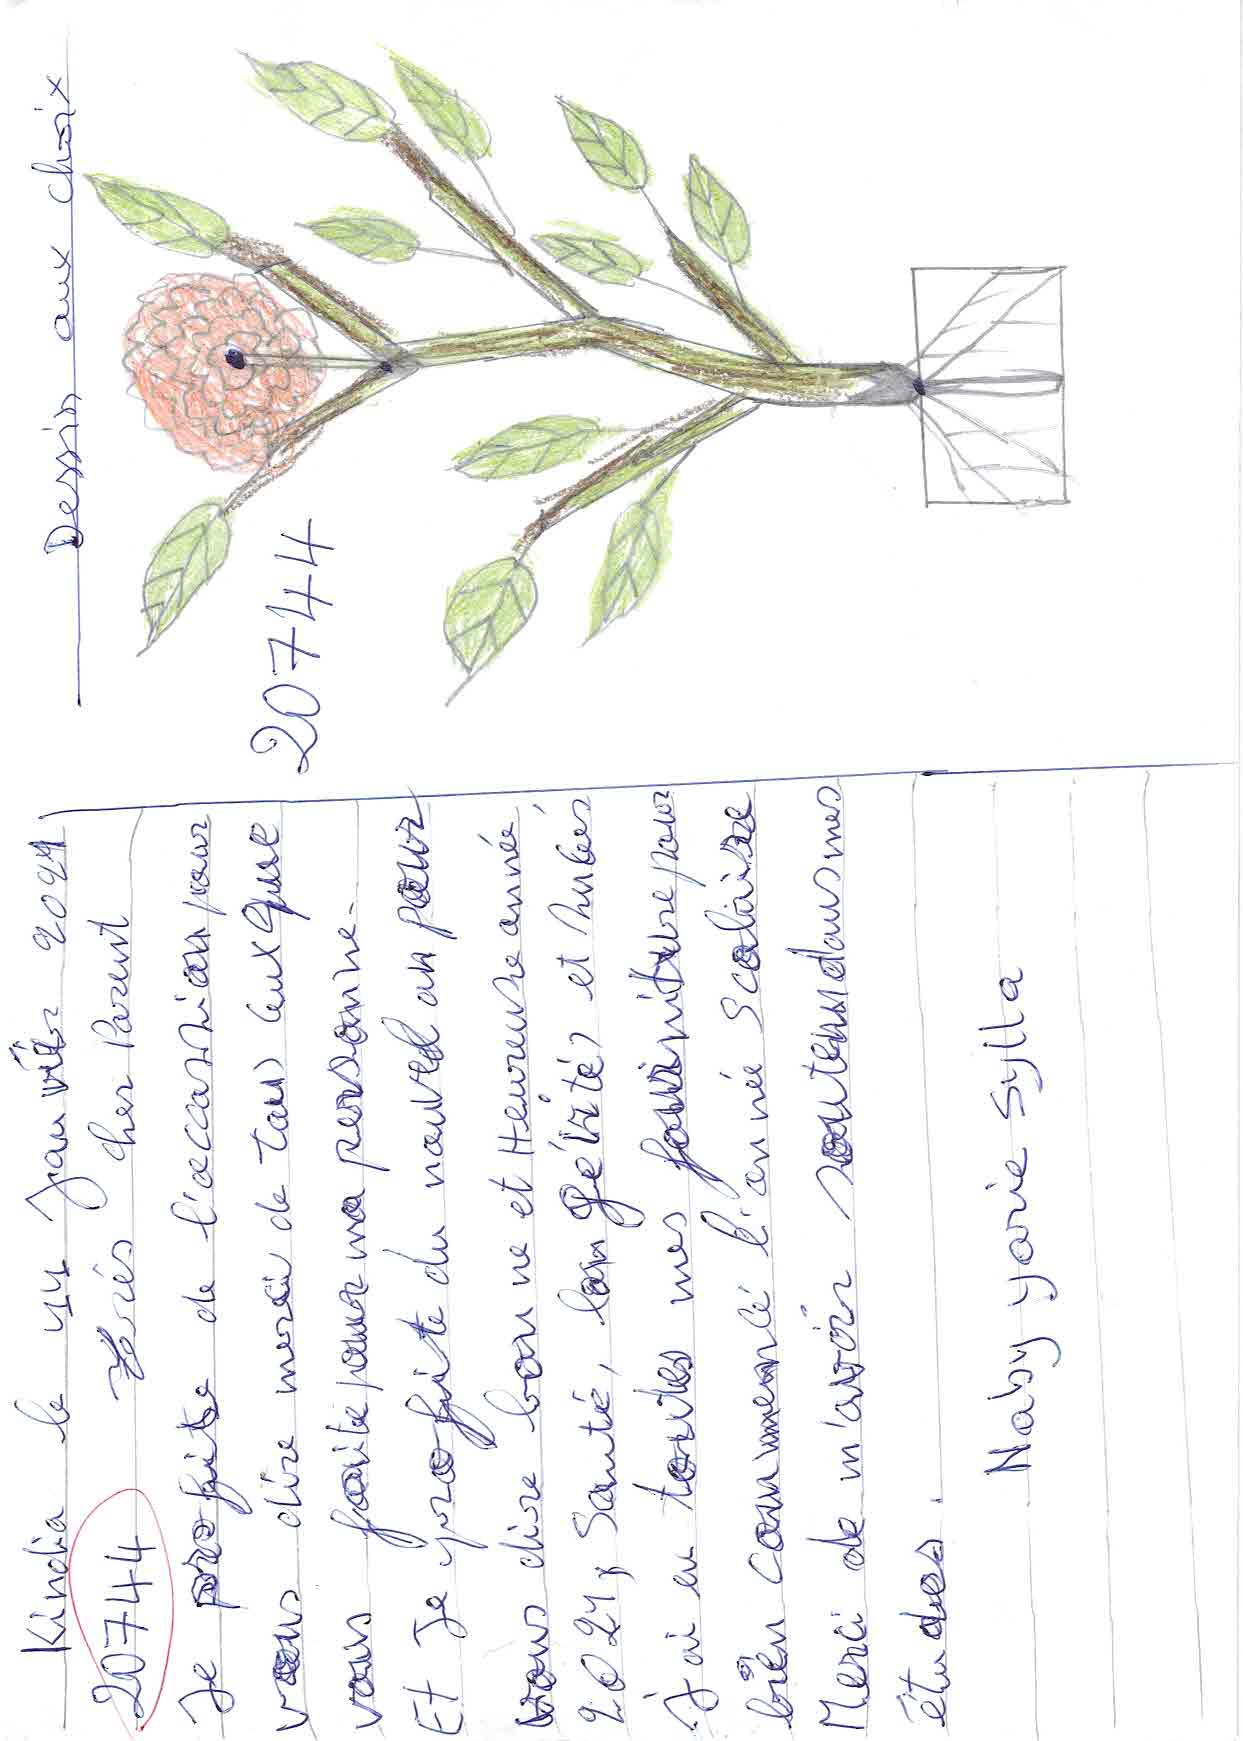 Kindia le 11 janvier 2021
20744
trés cher Parent
Je profite de l'occassion pour
vous dire merci de tous ceux que
vous faite pour ma personne.
Et Je profite du nouvel an pour
vous dire bonne et Heureuse année
2021, Santé, longévité, et
J'ai eu toutes mes fourniture pour
bien commencé l'année scolaire
Merci de m'avoir soutenu dans mes
études.
Naby yarie Sylla
Dessin aux choix
20744